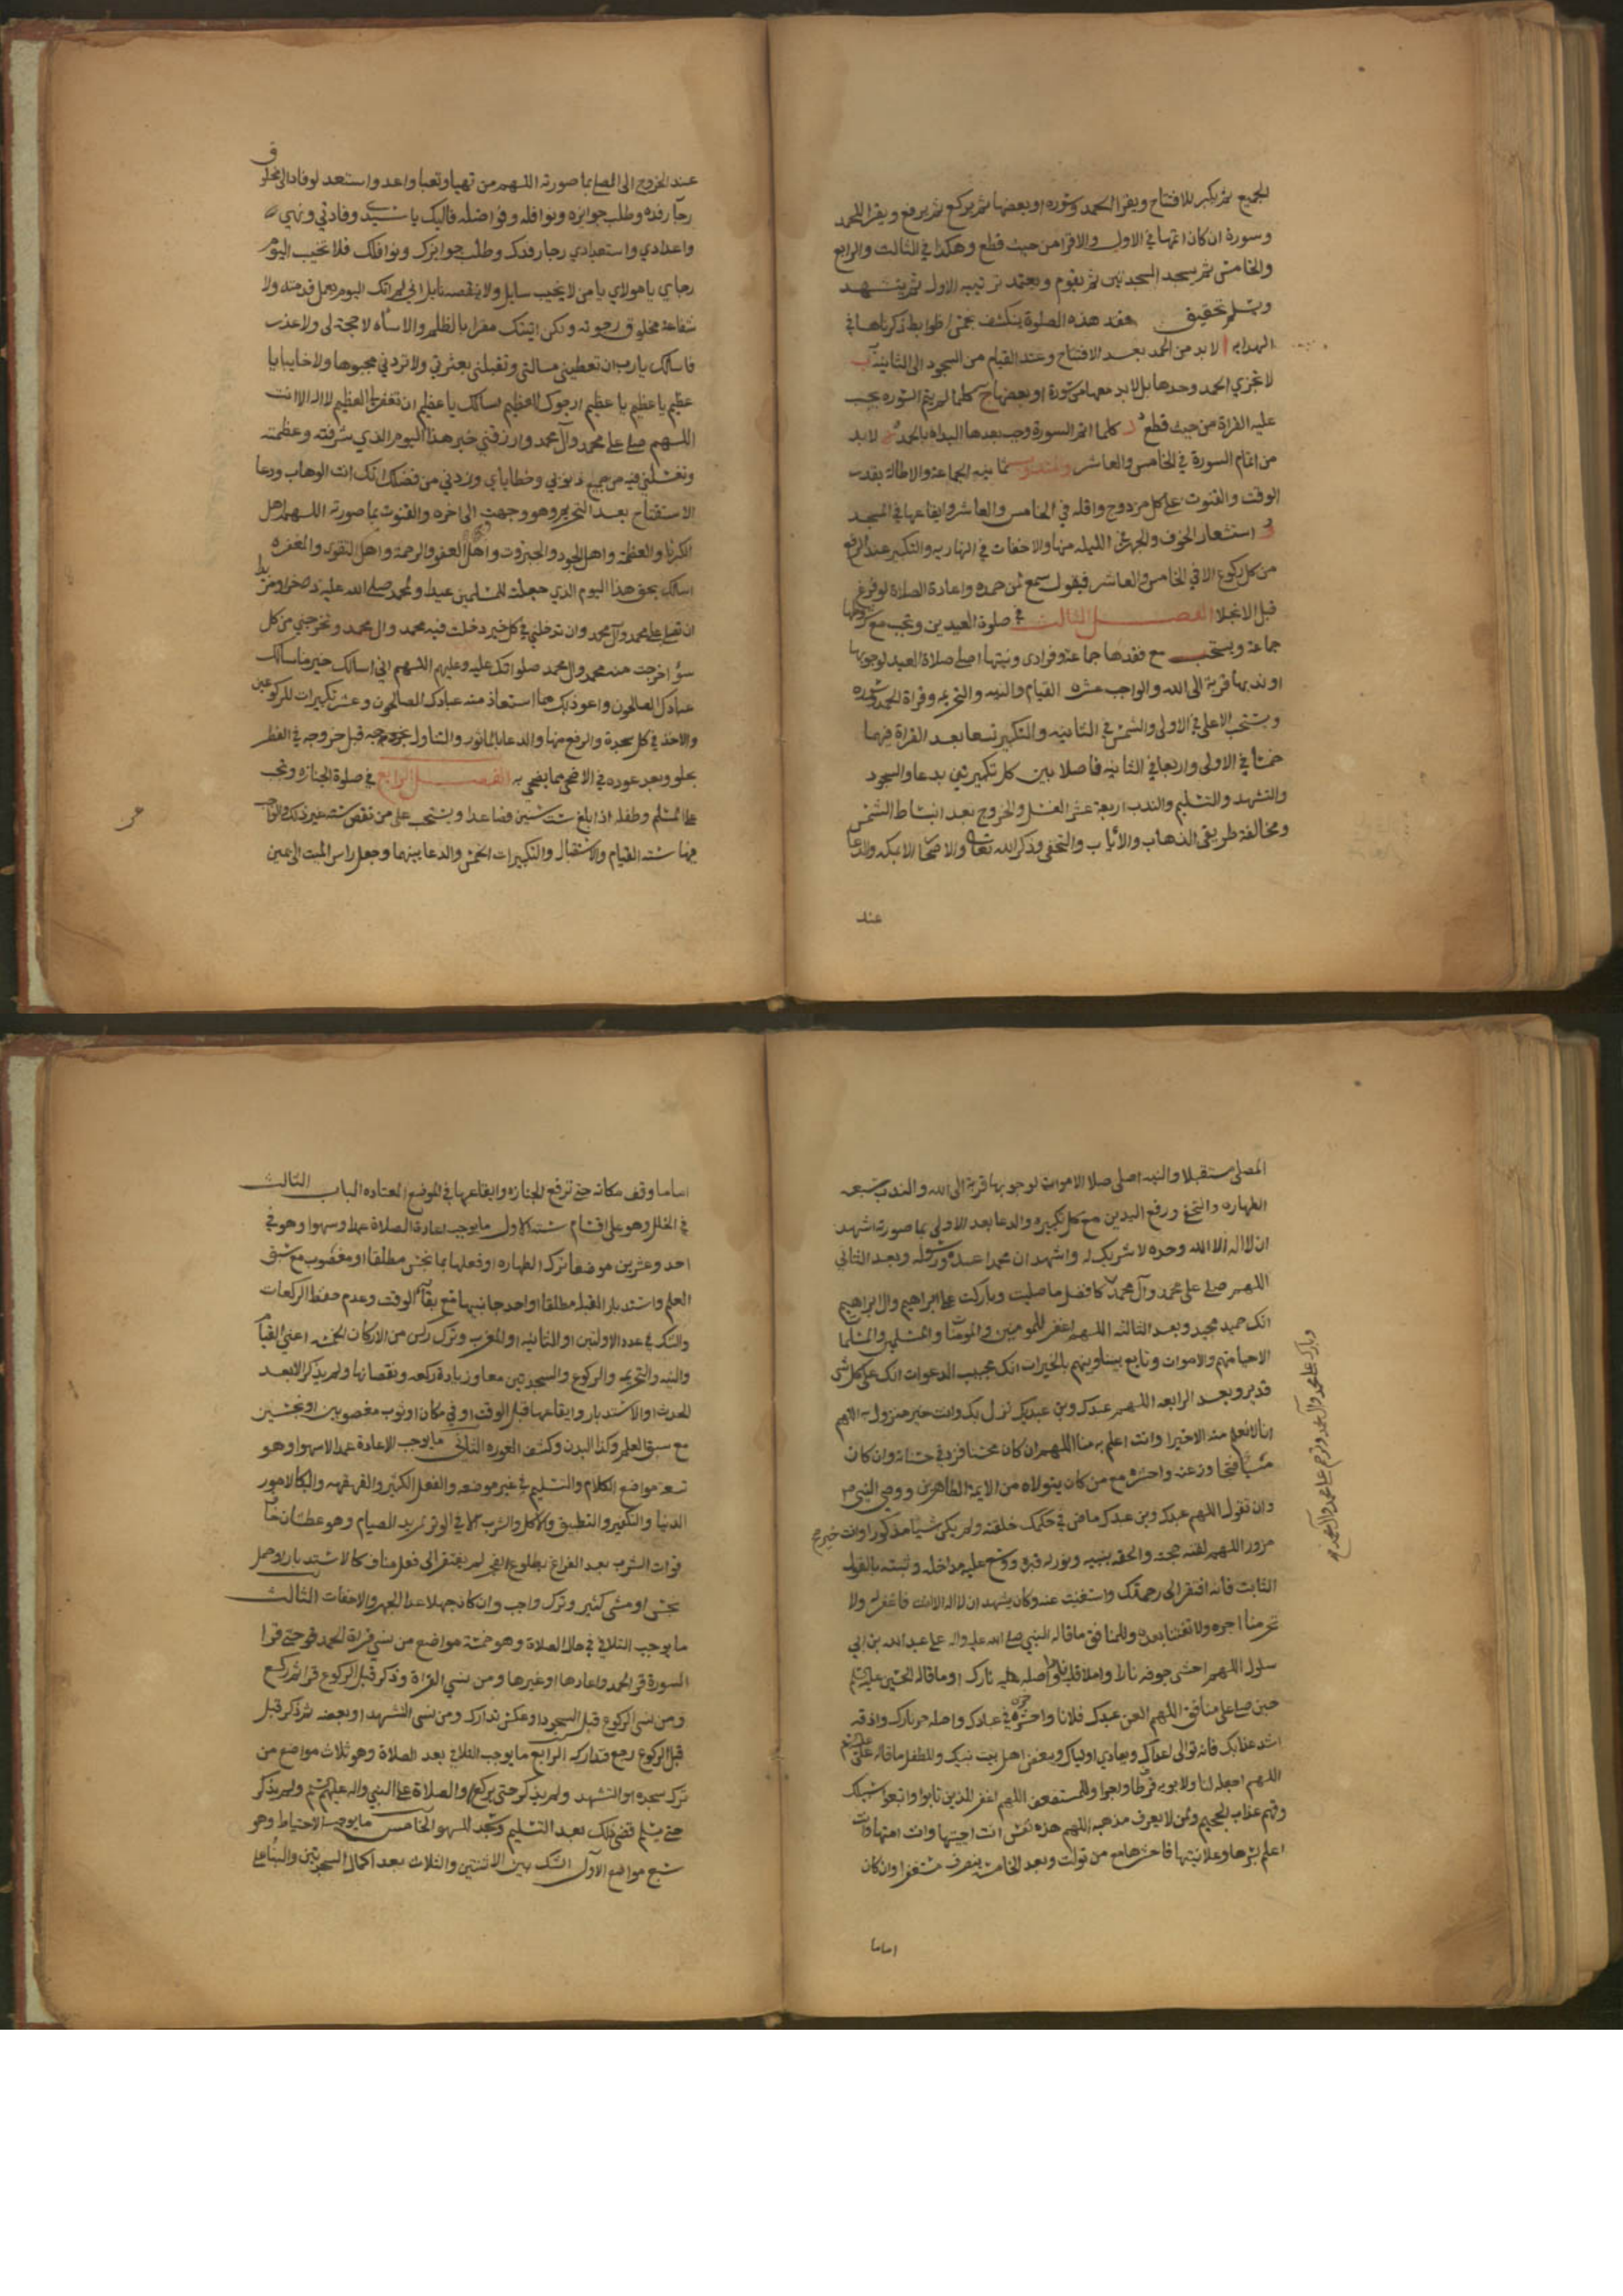 الجميع ثم يكبر للافتتاح ويقرا الحمد وسوره او بعضها ثم يركع ثم يرفع ويقرا الحمد
وسورة ان كان اتمها في الاول والا قرا من حيث قطع وهكذا في الثالث والرابع
والخامس ثم يسجد السجدتين ثم يقوم ويعتمد ترتيبه الاول ثم يتشهد
ويسلم تحقيق هذه الصلوة ينكشف بخمس ضوابط ذكرناها في
الهدايه ا لا بد من الحمد بعد الافتتاح وعند القيام من السجود الى الثانية ب
لا تجزي الحمد وحدها بل لا بد معها من سورة او بعضها ج كلما لم يتم السوره يجب
عليه القراة من حيث قطع د كلما اتم السورة وجب بعدها البداة بالحمد ه لا بد
من اتمام السورة في الخامس والعاشر والمندوب الجماعة والاطالة بقدر
الوقت والقنوت على كل مزدوج واقله في الخامس والعاشر وايقاعها في المسجد
استشعار الخوف والجهر في الليله منها والاخفات في النهاريه والتكبير عند الرفع
من كل ركوع الا في الخامس والعاشر فيقول سمع لمن حمده واعادة الصلاة لو فرغ
قبل الانجلا الفصل الثالث في صلوة العيدين وتجب مع شروطها
جماعة ويستحب مع فقدها جماعة وفرادى ونيتها اصلي صلاة العيد لوجوبها
او ندبها قربة الى الله والواجب عشره القيام والنيه والتحريمه وقراة الحمد وسوره
ويستحب الاعلى في الاولى والشمس في الثانيه والتكبير تسعا بعد القراة فيهما
خمسا في الاولى واربعا في الثانيه فاصلا بين كل تكبيرتين بدعا والسجود
والتشهد والتسليم والندب اربعة عشر الغسل والخروج بعد انبساط الشمس
ومخالفة طريقي الذهاب والاياب والتحفي وذكر الله تعالى والاصحار الا بمكه والدعا
عند
عند الخروج الى المصلى بما صورته اللهم من تهيا وتعبا واعد واستعد لوفاد الى مخلوق
رجا رفده وطلب جوايزه ونوافله وفواضله فاليك يا سيدي وفادتي وتهيي
واعدادي واستعدادي رجا رفدك وطلب جوايزك ونوافلك فلا تخيب اليوم
رجاي يا مولاي يا من لا يخيب سايل ولا ينقصه نايل اني لم اتك اليوم بعمل قدمته ولا
شفاعة مخلوق رجوته ولكن اتيتك مقرا بالظلم والاساه لا حجة لي ولا عذر
فاسالك يا رب ان تعطيني مسالتي وتقبلني بعثرتي ولا تردني مجبوها ولا خايبا يا
عظيم يا عظيم يا عظيم ارجوك للعظيم اسالك يا عظيم ان تغفر لي العظيم لا اله الا انت
اللهم صلى على محمد وآل محمد وارزقني خير هذا اليوم الذي شرفته وعظمته
وتغسلني فيه من جميع ذنوبي وخطاياي وزدني من فضلك انك انت الوهاب ودعا
الاستفتاح بعد التحريم وهو وجهت الى اخره والقنوت بما صورته اللهم اهل
الكبريا والعظمة واهل الجود والجبروت واهل العفو والرحمة واهل التقوى والمغفره
اسالك بحق هذا اليوم الذي جعلته للمسلمين عيدا ولمحمد صلى الله عليه ذخرا ومزيدا
ان تصلي على محمد وآل محمد وان تدخلني في كل خير دخلت فيه محمد وال محمد وتخرجني من كل
سؤ اخرجت منه محمد وال محمد صلواتك عليه وعليهم اللهم اني اسالك خير ما سالك
عبادك الصالحون واعوذ بك مما استعاذ منه عبادك الصالحون وعشر تكبيرات للركوعين
والاخذ في كل سجدة والرفع منها والدعا بالماثور والتناول قبل خروجه في الفطر
بحلو وبعد عوده في الاضحى مما يضحى به الفصل الرابع في صلوة الجنازه وتجب
على المسلم وطفله اذا بلغ ست سنين فصاعدا ويستحب على من نقص سنه عن ذلك والواجب
فيها سته القيام والاستقبال والتكبيرات الخمس والدعا بينهما وجعل راس الميت الى يمين
المصلى مستقبلا والنيه اصلي صلاة الاموات لوجوبها قربة الى الله والندب سبعه
الطهاره والتحفي ورفع اليدين مع كل تكبيره والدعا بعد الاولى بما صورته اشهد
ان لا اله الا الله وحده لا شريك له واشهد ان محمدا عبده ورسوله وبعد الثاني
اللهم صلى على محمد وآل محمد كافضل ما صليت وباركت على ابراهيم وال ابراهيم
انك حميد مجيد وبعد الثالثه اللهم اغفر للمومنين والمومنات والمسلمين والمسلمات
الاحيا منهم والاموات وتابع بيننا وبينهم بالخيرات انك مجيب الدعوات انك على كل شي
قدير وبعد الرابعه اللهم عبدك وبن عبديك نزل بك وانت خير منزول به اللهم
انا لا نعلم منه الا خيرا وانت اعلم به منا اللهم ان كان محسنا فزد في حسناته وان كان
مسيا فتجاوز عنه واحشره مع من كان يتولاه من الايمة الطاهرين
وان تقول اللهم عبدك وبن عبدك ماض في حكمك خلقته ولم يكن شيا مذكورا وانت خير
مزور اللهم لقنه حجته والحقه بنبيه ونور له قبره ووسع عليه مداخله وثبته بالقول
الثابت فانه افتقر الى رحمتك واستغنيت عنه وكان يشهد ان لا اله الا انت فاغفر له ولا
تحرمنا اجره ولا تفتنا بعده وللمنافق ما قاله النبي صلى الله عليه واله على عبد الله بن ابي
سلول اللهم احشى جوفه نارا واملا قبره نارا واصله نارك او ما قاله الحسين عليه السلم
حين صلى على منافق اللهم العن عبدك فلانا واخزه في عبادك واصله حر نارك واذقه
اشد عذابك فانه توالى اعداك ويعادي اولياك ويبغض اهل بيت نبيك وللطفل ما قاله على
اللهم اجعله لنا ولابويه فرطا واجرا وللمستضعف اللهم اغفر للذين تابوا واتبعوا سبيلك
وقهم عذاب الجحيم ولمن لا يعرف مذهبه اللهم هذه نفس انت احييتها وانت امتها وانت
اعلم بسرها وعلانيتها فاحشرها مع من تولت وبعد الخامسه ينصرف مستغفرا وان كان
وبارك على محمد وآل محمد وترحم على محمد وآل محمد
اماما
اماما وقف مكانه حتى ترفع الجنازه وايقاعها في الموضع المعتاده الباب الثالث
في الخلل وهو على اقسام سته الاول ما يوجب اعادة الصلاة عمدا وسهوا وهو في
احد وعشرين موضعا ترك الطهاره او فعلها بما نجس مطلقا او مغصوب مع سبق
العلم واستدبار القبله مطلقا او احد جانبيها مع بقا الوقت وعدم حفظ الركعات
والشك في عدد الاولتين او الثنائيه او المغرب وترك ركن من الاركان الخمسه اعني القيام
والنيه والتحريمه والركوع والسجدتين معا وزيادة ركعه ونقصانها ولم يذكر الا بعد
الحدث او الاستدبار وايقاعها قبل الوقت او في مكان او ثوب مغصوبين او نجسين
مع سبق العلم وكذا البدن وكشف العوره الثاني ما يوجب الاعادة عمدا لا سهوا وهو
تسعة مواضع الكلام والتسليم في غير موضعه والفعل الكثير والقهقهه والبكا لامور
الدنيا والتكفير والتطبيق والاكل والشرب الا في الوتر لمريد الصيام وهو عطشان خاف
فوات الشرب بعد الفراغ بطلوع الفجر لم يفتقر الى فعل مناف كالاستدبار وحمل
نجس او مشى كثير وترك واجب وان كان جهلا عدا الجهر والاخفات الثالث
ما يوجب التلافي في حال الصلاة وهو خمسة مواضع من نسي قراة الحمد حتى قرا
السورة قرا الحمد واعادها او غيرها ومن نسي القراة وذكر قبل الركوع قرا ثم ركع
ومن نسى الركوع قبل السجود او عكس تدارك ومن نسى التشهد او بعضه ثم ذكر قبل
قبل الركوع رجع فتداركه الرابع ما يوجب التلافي بعد الصلاة وهو ثلاث مواضع من
ترك سجده او التشهد ولم يذكر حتى يركع والصلاة على النبي واله عليهم السلم ولم يذكر
حتى يسلم قضى ذلك بعد التسليم وسجد للسهو الخامس ما يوجب الاحتياط وهو
سبع مواضع الاول الشك بين الاثنتين والثلاث بعد اكمال السجدتين والبنا على